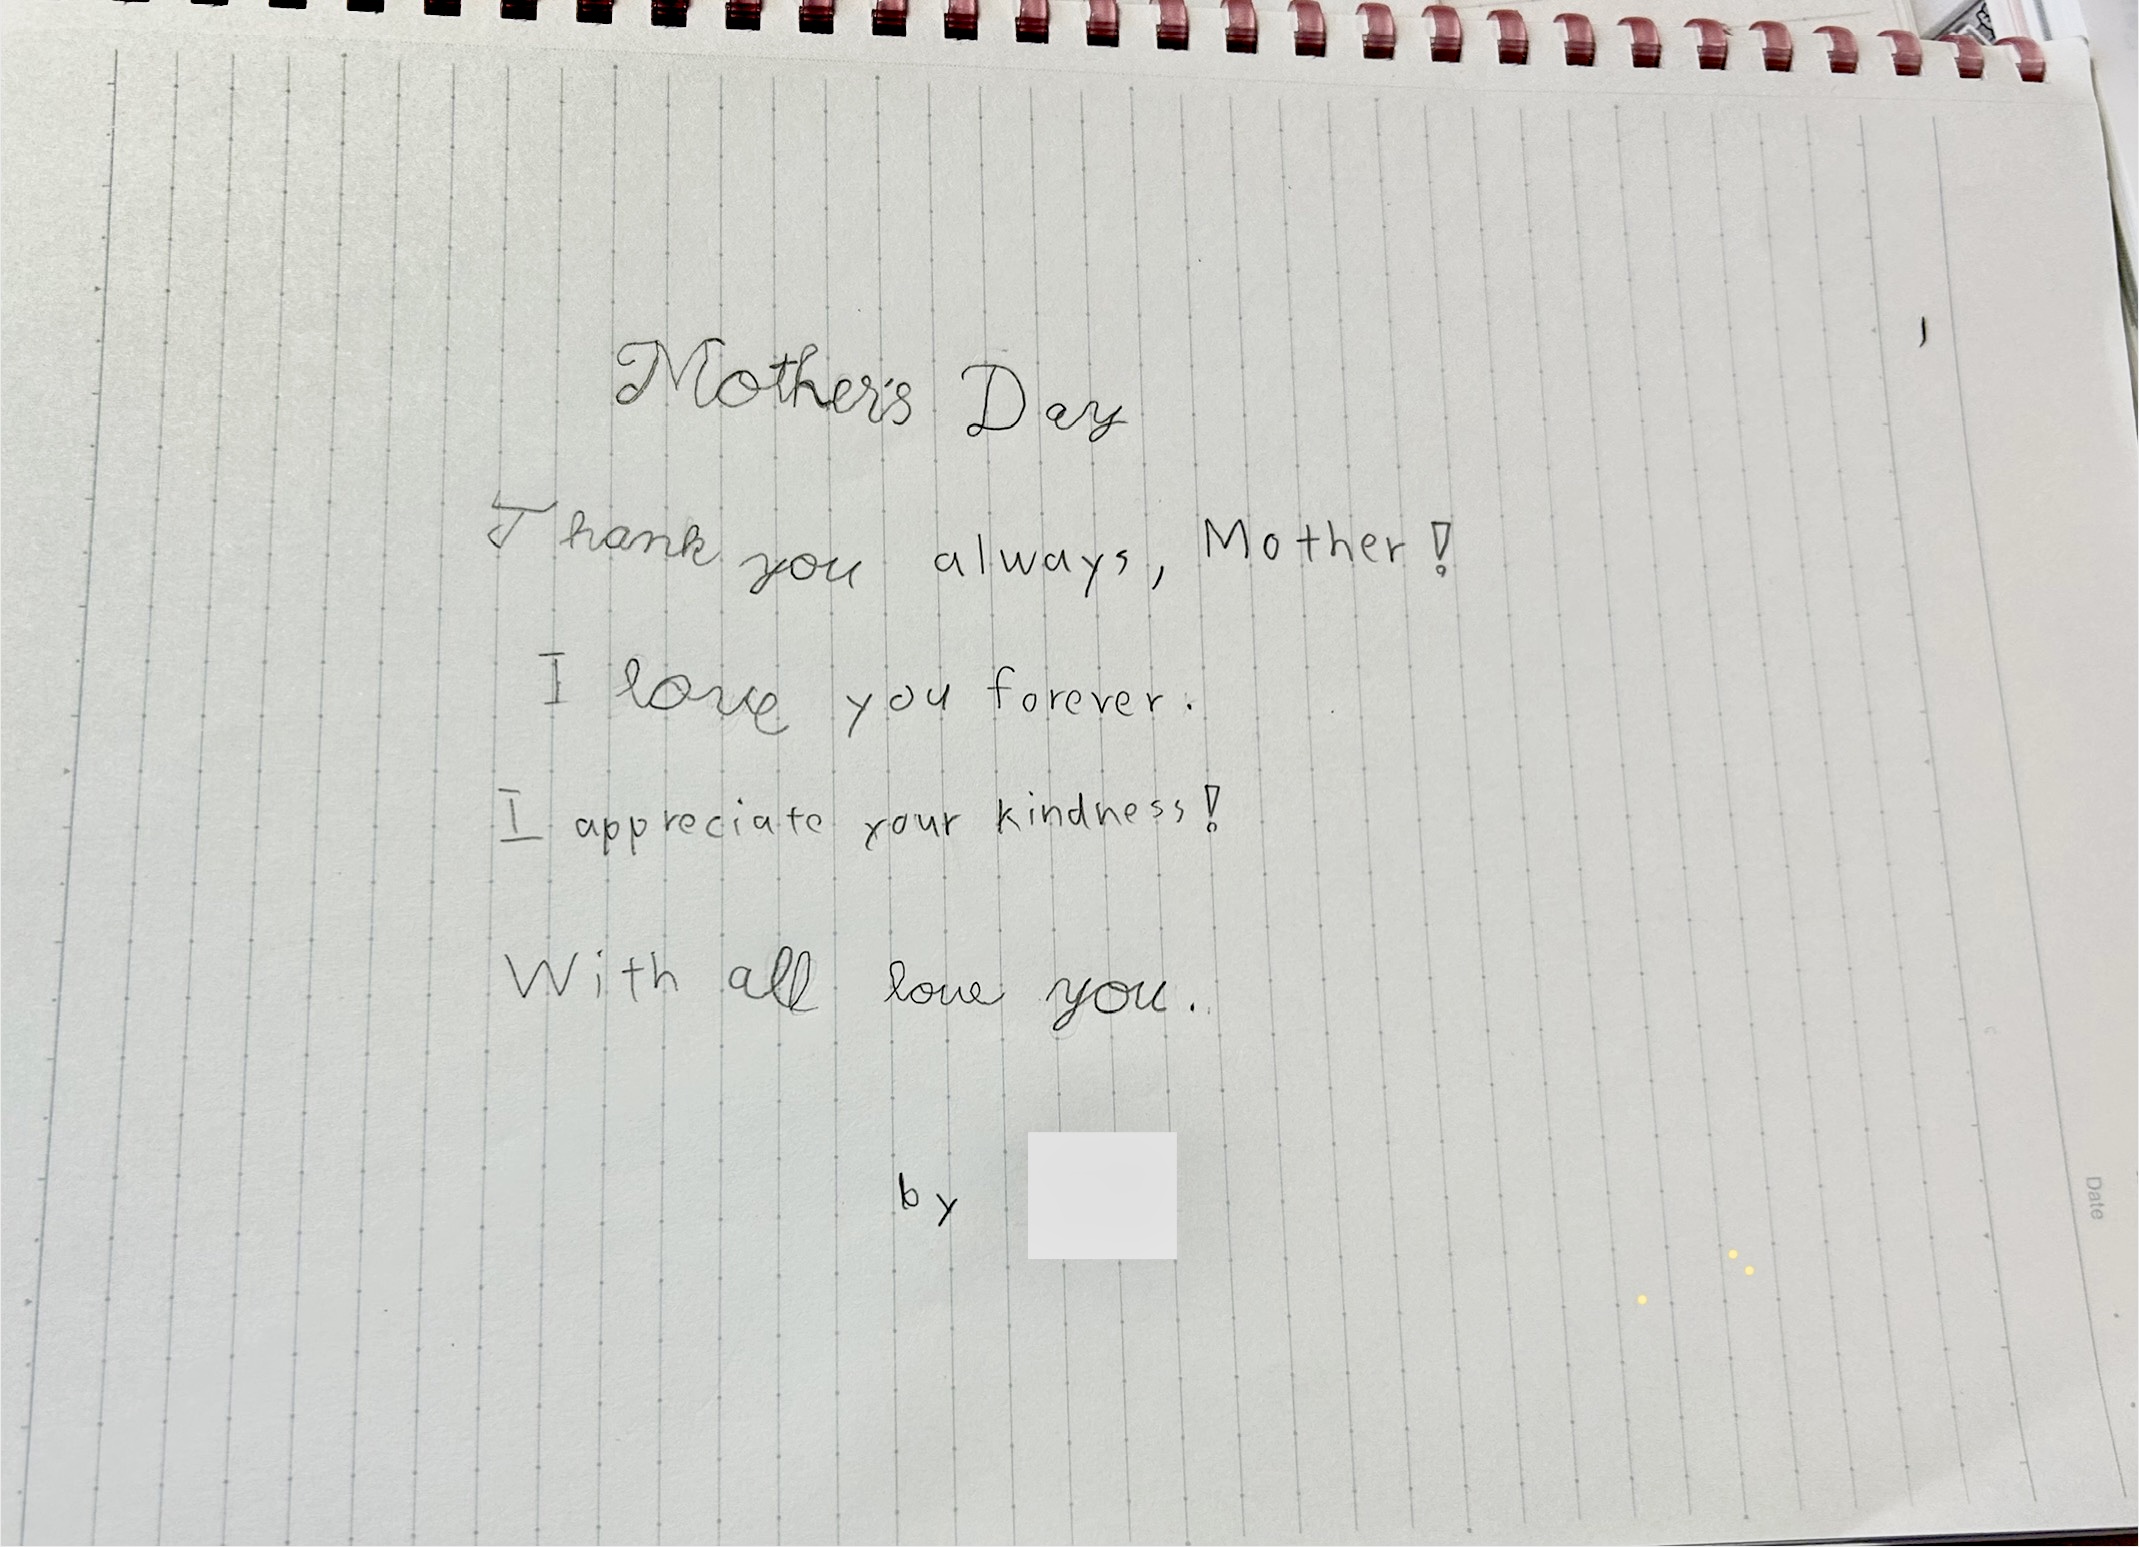 Mother's Day
Thank you always, Mother!
I love you forever.
I appreciate your kindness!
With all love you.
by
Date